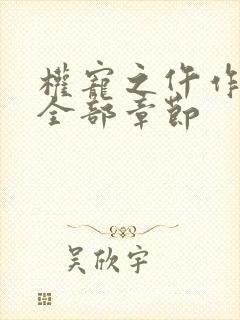 權寵之仵作
全部章節
吴欣宇